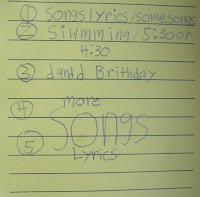 ① Songs lyrics/some songs
② Siwmming/5:30 or
4:30
③ dandd Brithday
④ more
Songs
⑤ Lyrics